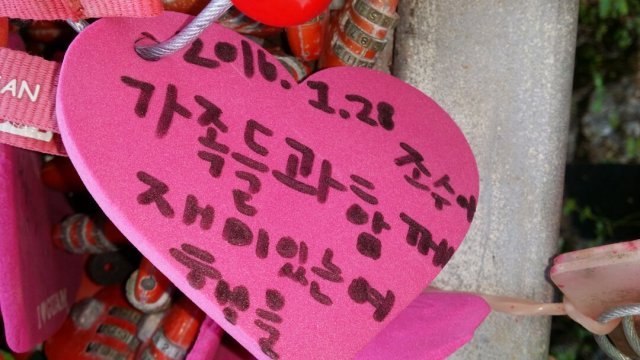 2016. 1.28
조수아
가족들과 함께
재미있는 여
행을
SAN